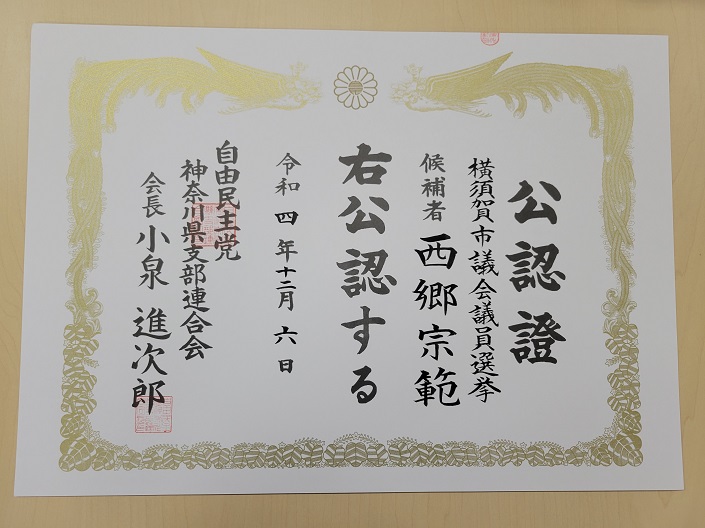 公認證
横須賀市議会議員選挙
候補者 西郷宗範
右公認する
令和四年十二月六日
自由民主党
神奈川県支部連合会
会長 小泉進次郎